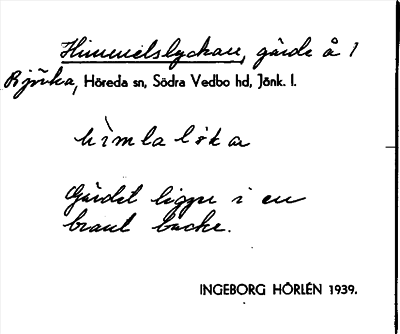 Himmelslyckan, gärde å 1
Björka, Höreda sn, Södra Vedbo hd, Jönk. l.
hìmla l k a
Gärdet ligger i en
brant backe.
INGEBORG HÖRLÉN 1939.